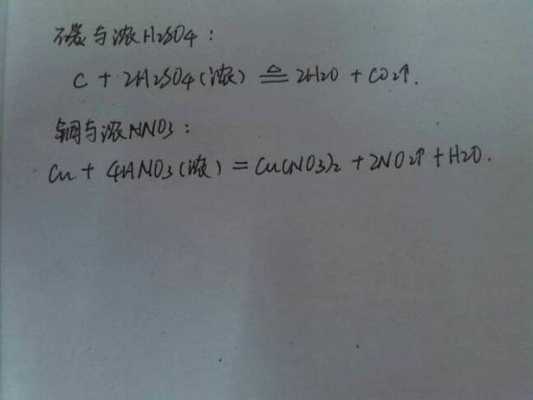 碳与浓H2SO4:
C + 2H2SO4(浓) ≜ 2H2O + CO2↑.
铜与浓HNO3:
Cu + 4HNO3(浓) = Cu(NO3)2 + 2NO2↑ + H2O.